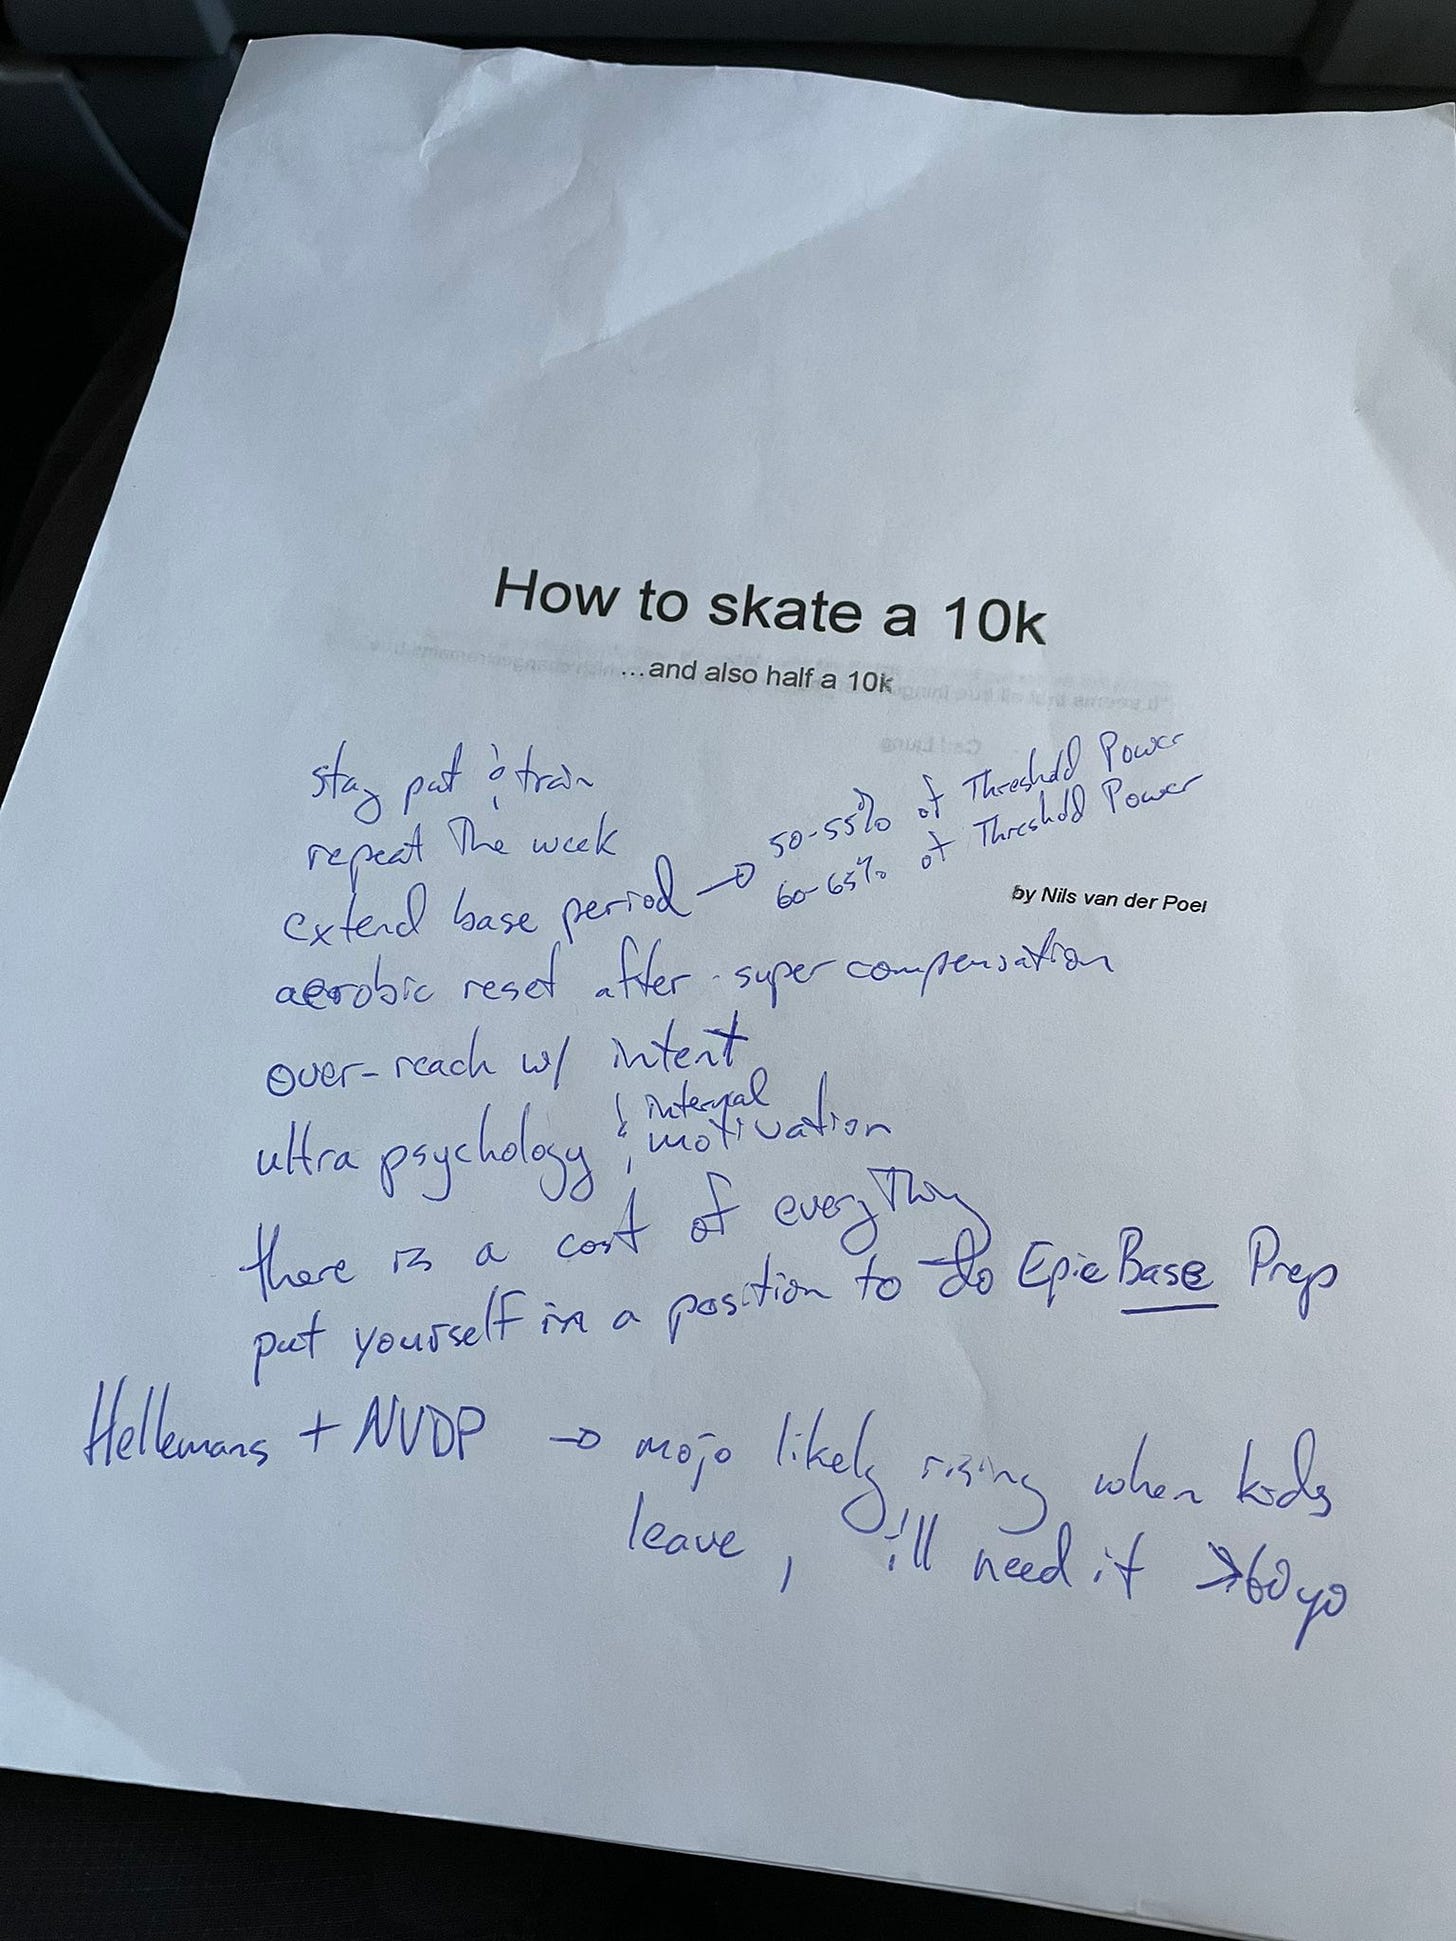 How to skate a 10k
...and also half a 10k
by Nils van der Poel
stay put & train
repeat the week
extend base period → 50-55% of Threshold Power
60-65% of Threshold Power
aerobic reset after super compensation
over-reach w/ intent
ultra psychology & internal motivation
there is a cost of everything
put yourself in a position to do Epic Base Prep
Hellemans + NVDP → mojo likely rising when kids
leave, i'll need it >60yo